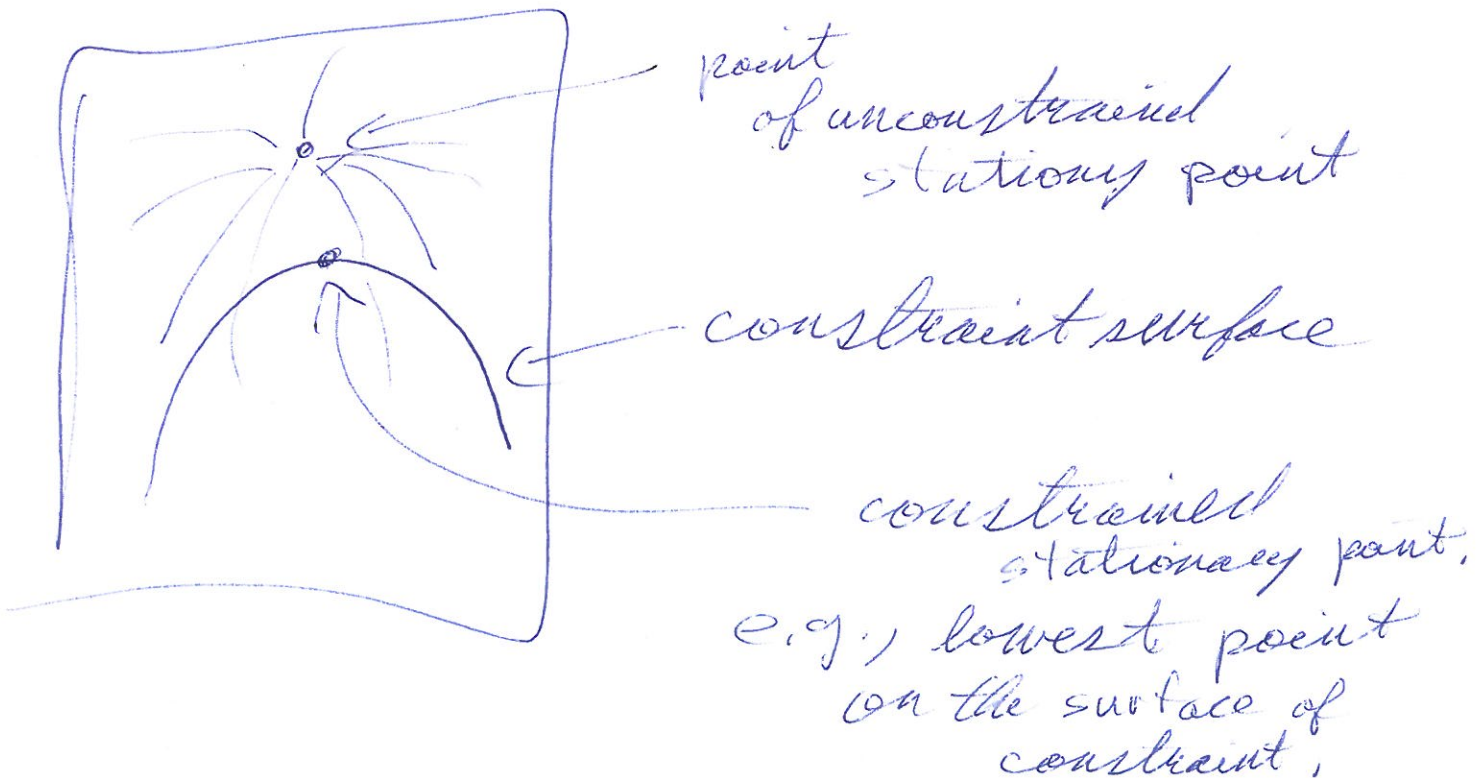 point
of unconstrained
stationy point
constraint surface
constrained
stationary point.
e.g., lowest point
on the surface of
constraint.